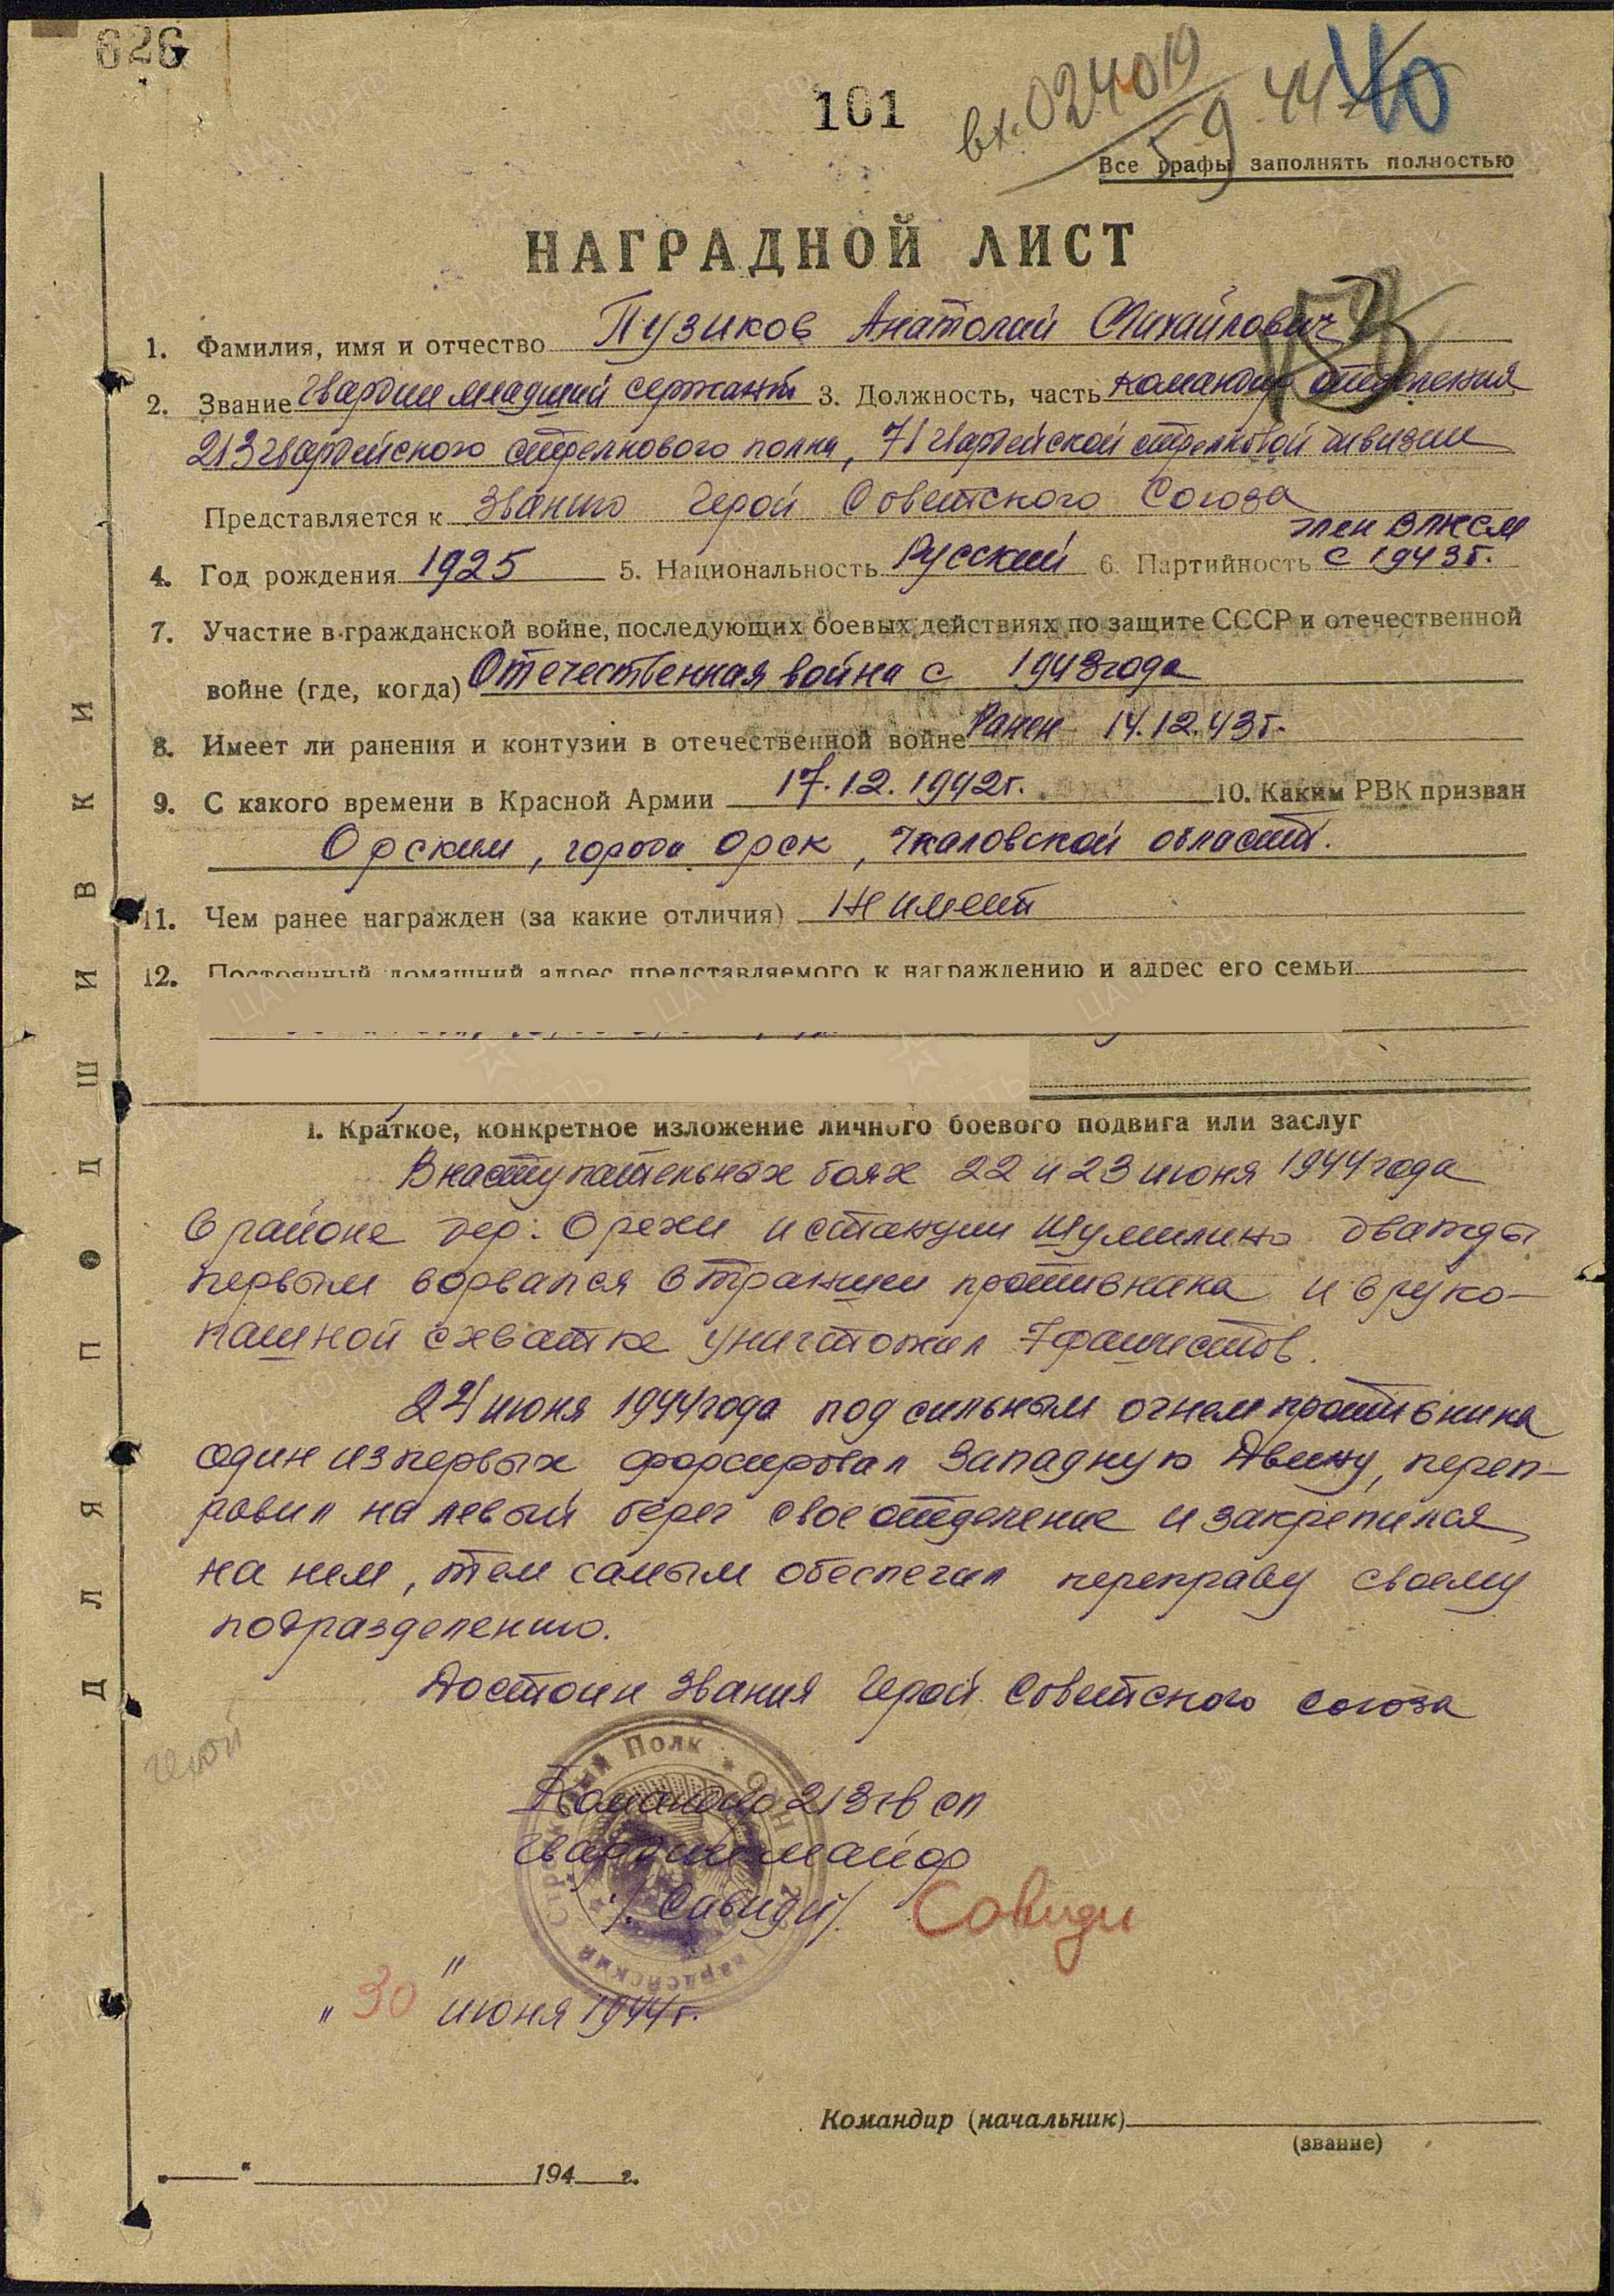 626
101
вх. 024019
5.9.44
40
Все графы заполнять полностью
НАГРАДНОЙ ЛИСТ
1. Фамилия, имя и отчество Пузиков Анатолий Михайлович
2. Звание гвардии младший сержант 3. Должность, часть командир отделения
213 гвардейского стрелкового полка, 71 гвардейской стрелковой дивизии
Представляется к званию Герой Советского Союза
член ВЛКСМ
4. Год рождения 1925 5. Национальность Русский 6. Партийность с 1943 г.
7. Участие в гражданской войне, последующих боевых действиях по защите СССР и отечественной
войне (где, когда) Отечественная война с 1943 года
8. Имеет ли ранения и контузии в отечественной войне Ранен 14.12.43 г.
9. С какого времени в Красной Армии 17.12.1942 г. 10. Каким РВК призван
Орским, города Орск, Чкаловской области.
11. Чем ранее награжден (за какие отличия) Не имеет
12. Постоянный домашний адрес представляемого к награждению и адрес его семьи
I. Краткое, конкретное изложение личного боевого подвига или заслуг
В наступательных боях 22 и 23 июня 1944 года
в районе дер: Орехи и станции Шумилино дважды
первым ворвался в траншеи противника и в руко-
пашной схватке уничтожил 7 фашистов.
24 июня 1944 года под сильным огнем противника
один из первых форсировал Западную Двину, переп-
равил на левый берег свое отделение и закрепился
на нем, тем самым обеспечил переправу своему
подразделению.
Достоин звания Герой Советского Союза
Герой
Командир 213 гв сп
гвардии майор
/Савиди/ Савиди
"30" июня 1944 г.
Командир (начальник)
(звание)
" " 194 г.
ДЛЯ ПОДШИВКИ